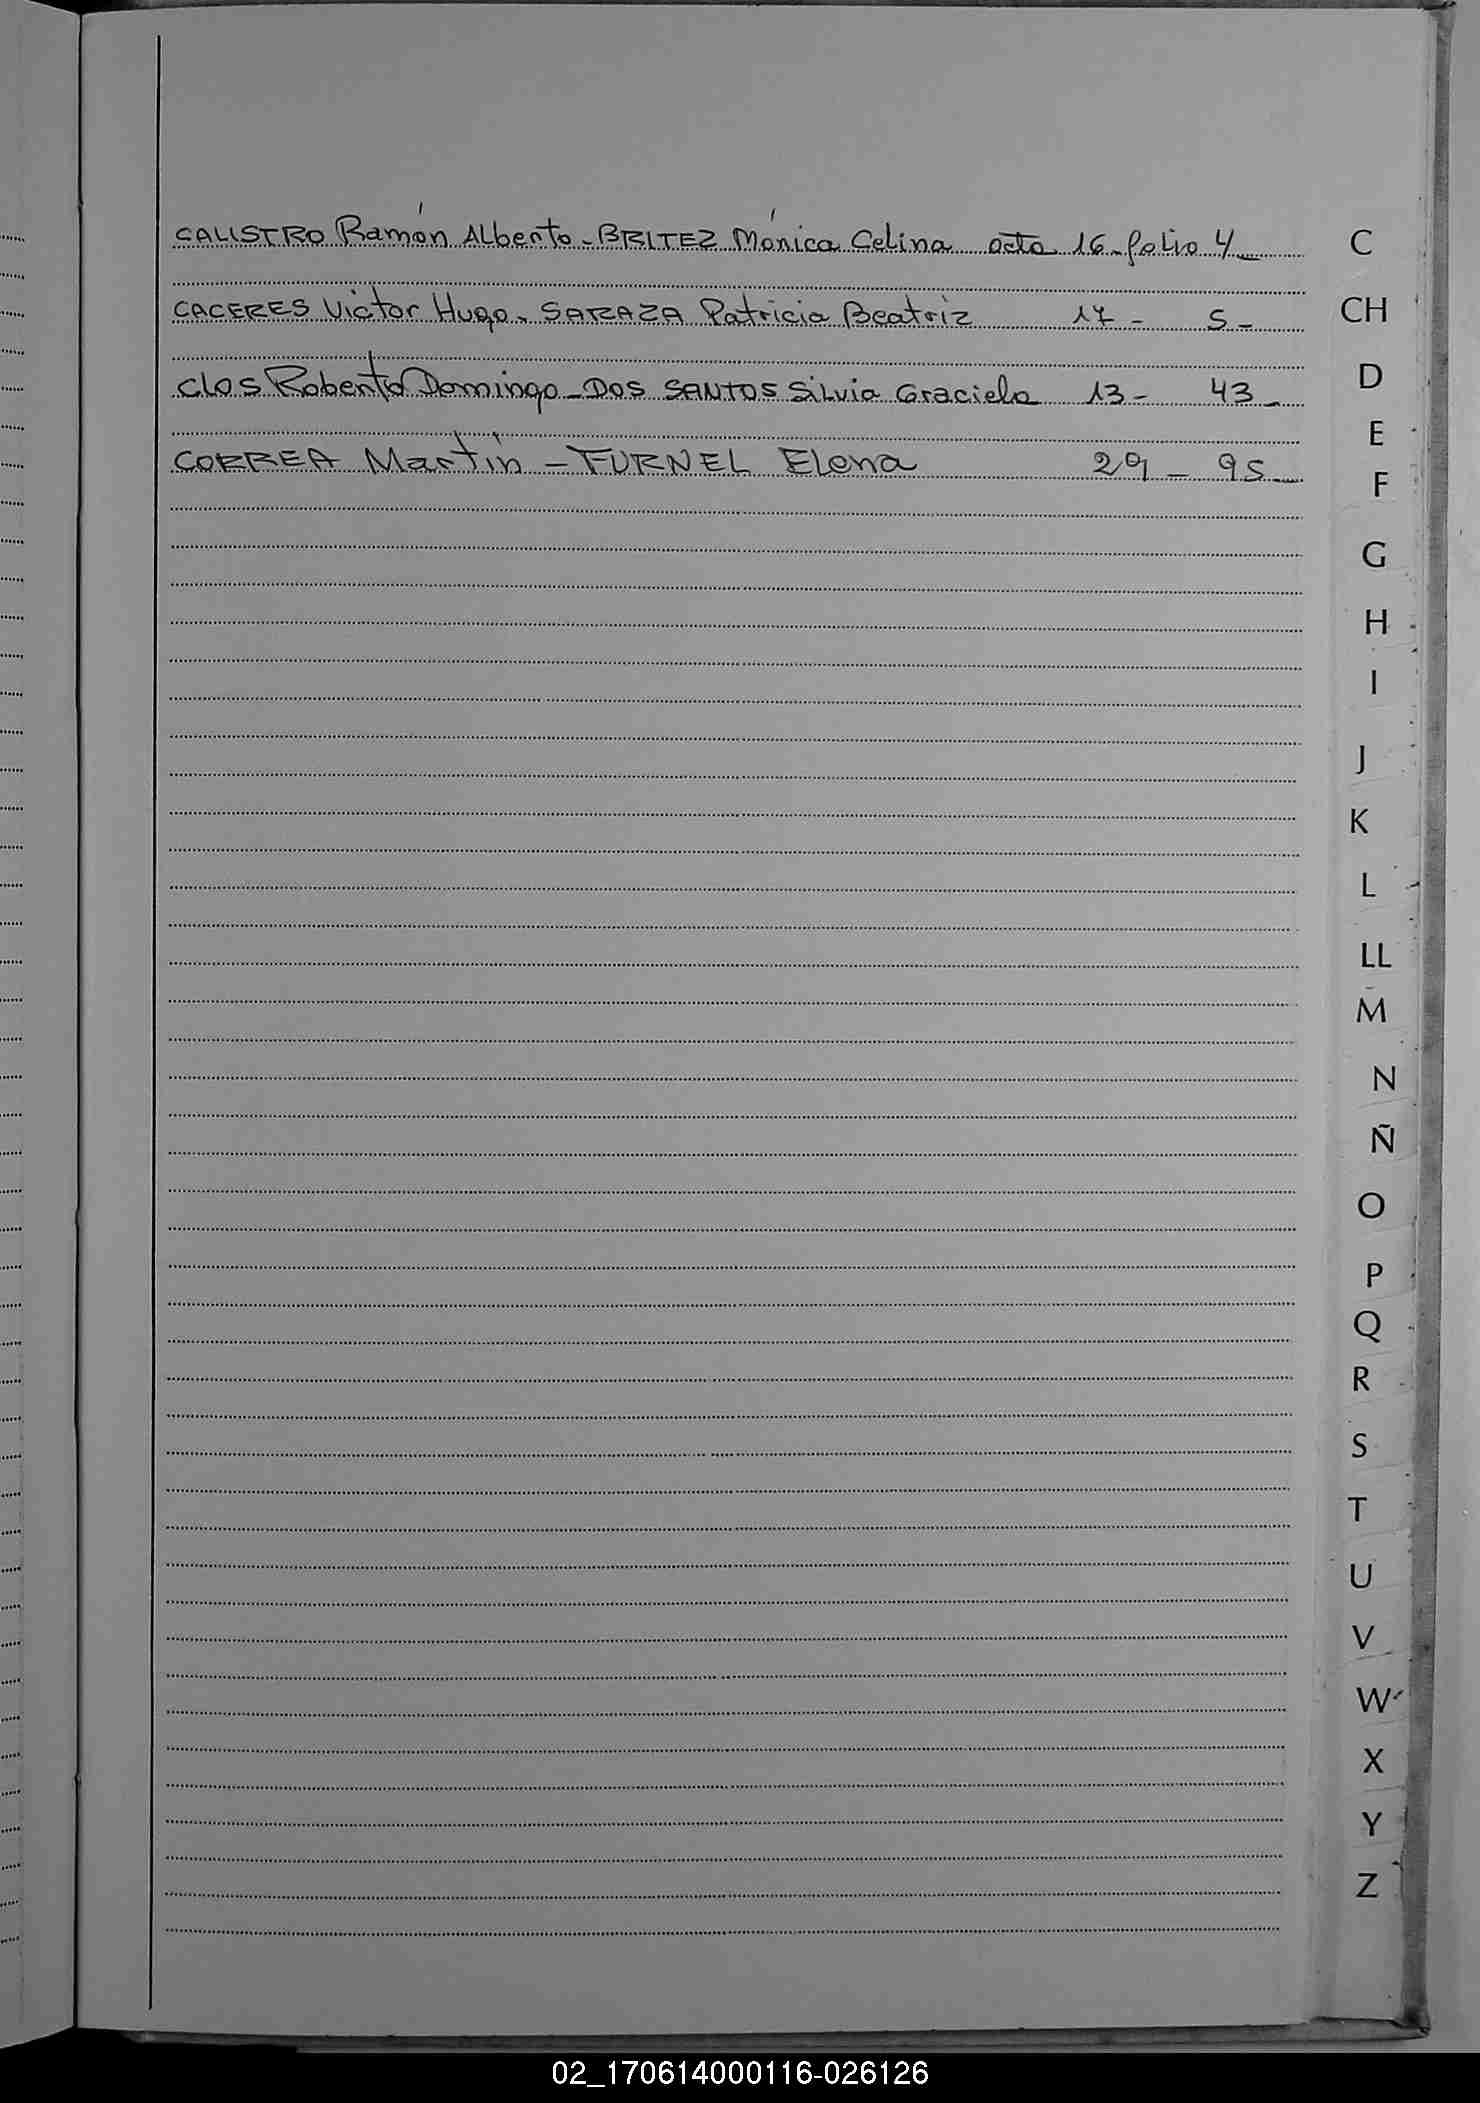 CALISTRO Ramón Alberto - BRITEZ Mónica Celina acta 16 - folio 4 -
CACERES Victor Hugo - SARAZA Patricia Beatriz 17 - 5 -
Clos Roberto Domingo - DOS SANTOS Silvia Graciela 13 - 43 -
CORREA Martín - FURNEL Elena 29 - 95 -
C
CH
D
E
F
G
H
I
J
K
L
LL
M
N
Ñ
O
P
Q
R
S
T
U
V
W
X
Y
Z
02_170614000116-026126